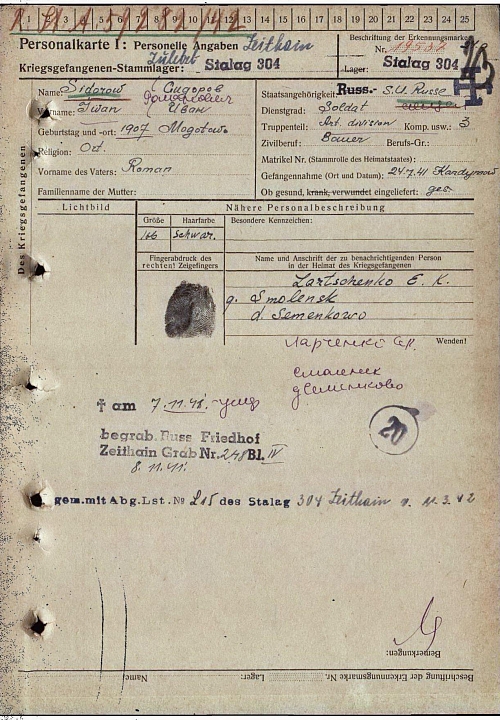 1 2 3 4 5 6 7 8 9 10 11 12 13 14 15 16 17 18 19 20 21 22 23 24 25
Personalkarte I: Personelle Angaben Zeithain
Beschriftung der Erkennungsmarke
Nr.
Kriegsgefangenen-Stammlager: Stalag 304
Lager: Stalag 304
Des Kriegsgefangenen
Name: Sidorow Сидоров
Vorname: Iwan Иван
Geburtstag und -ort: 1907 Mogotowo
Religion: Ort.
Vorname des Vaters: Roman
Familienname der Mutter:
Staatsangehörigkeit: Russ.- S.U. Russe
Dienstgrad: Soldat
Truppenteil: Art. division Komp. usw.: 3
Zivilberuf: Bauer Berufs-Gr.:
Matrikel Nr. (Stammrolle des Heimatstaates):
Gefangennahme (Ort und Datum): 24.7.41
Ob gesund, krank, verwundet eingeliefert: ges.
Lichtbild
Nähere Personalbeschreibung
Größe Haarfarbe Besondere Kennzeichen:
166 Schwar.
Fingerabdruck des
rechten! Zeigefingers
Name und Anschrift der zu benachrichtigenden Person
in der Heimat des Kriegsgefangenen
Lartschenko E. K.
g. Smolensk
d. Semenkowo
Ларченко
Wenden!
Смоленск
д Семенково
† am 7.11.41.
20
begrab. Russ Friedhof
Zeithain Grab Nr. 248 Bl. IV
8.11.41.
gem. mit Abg. Lst. № 215 des Stalag 304 Zeithain
Bemerkungen:
Beschriftung der Erkennungsmarke Nr. Lager: Name: